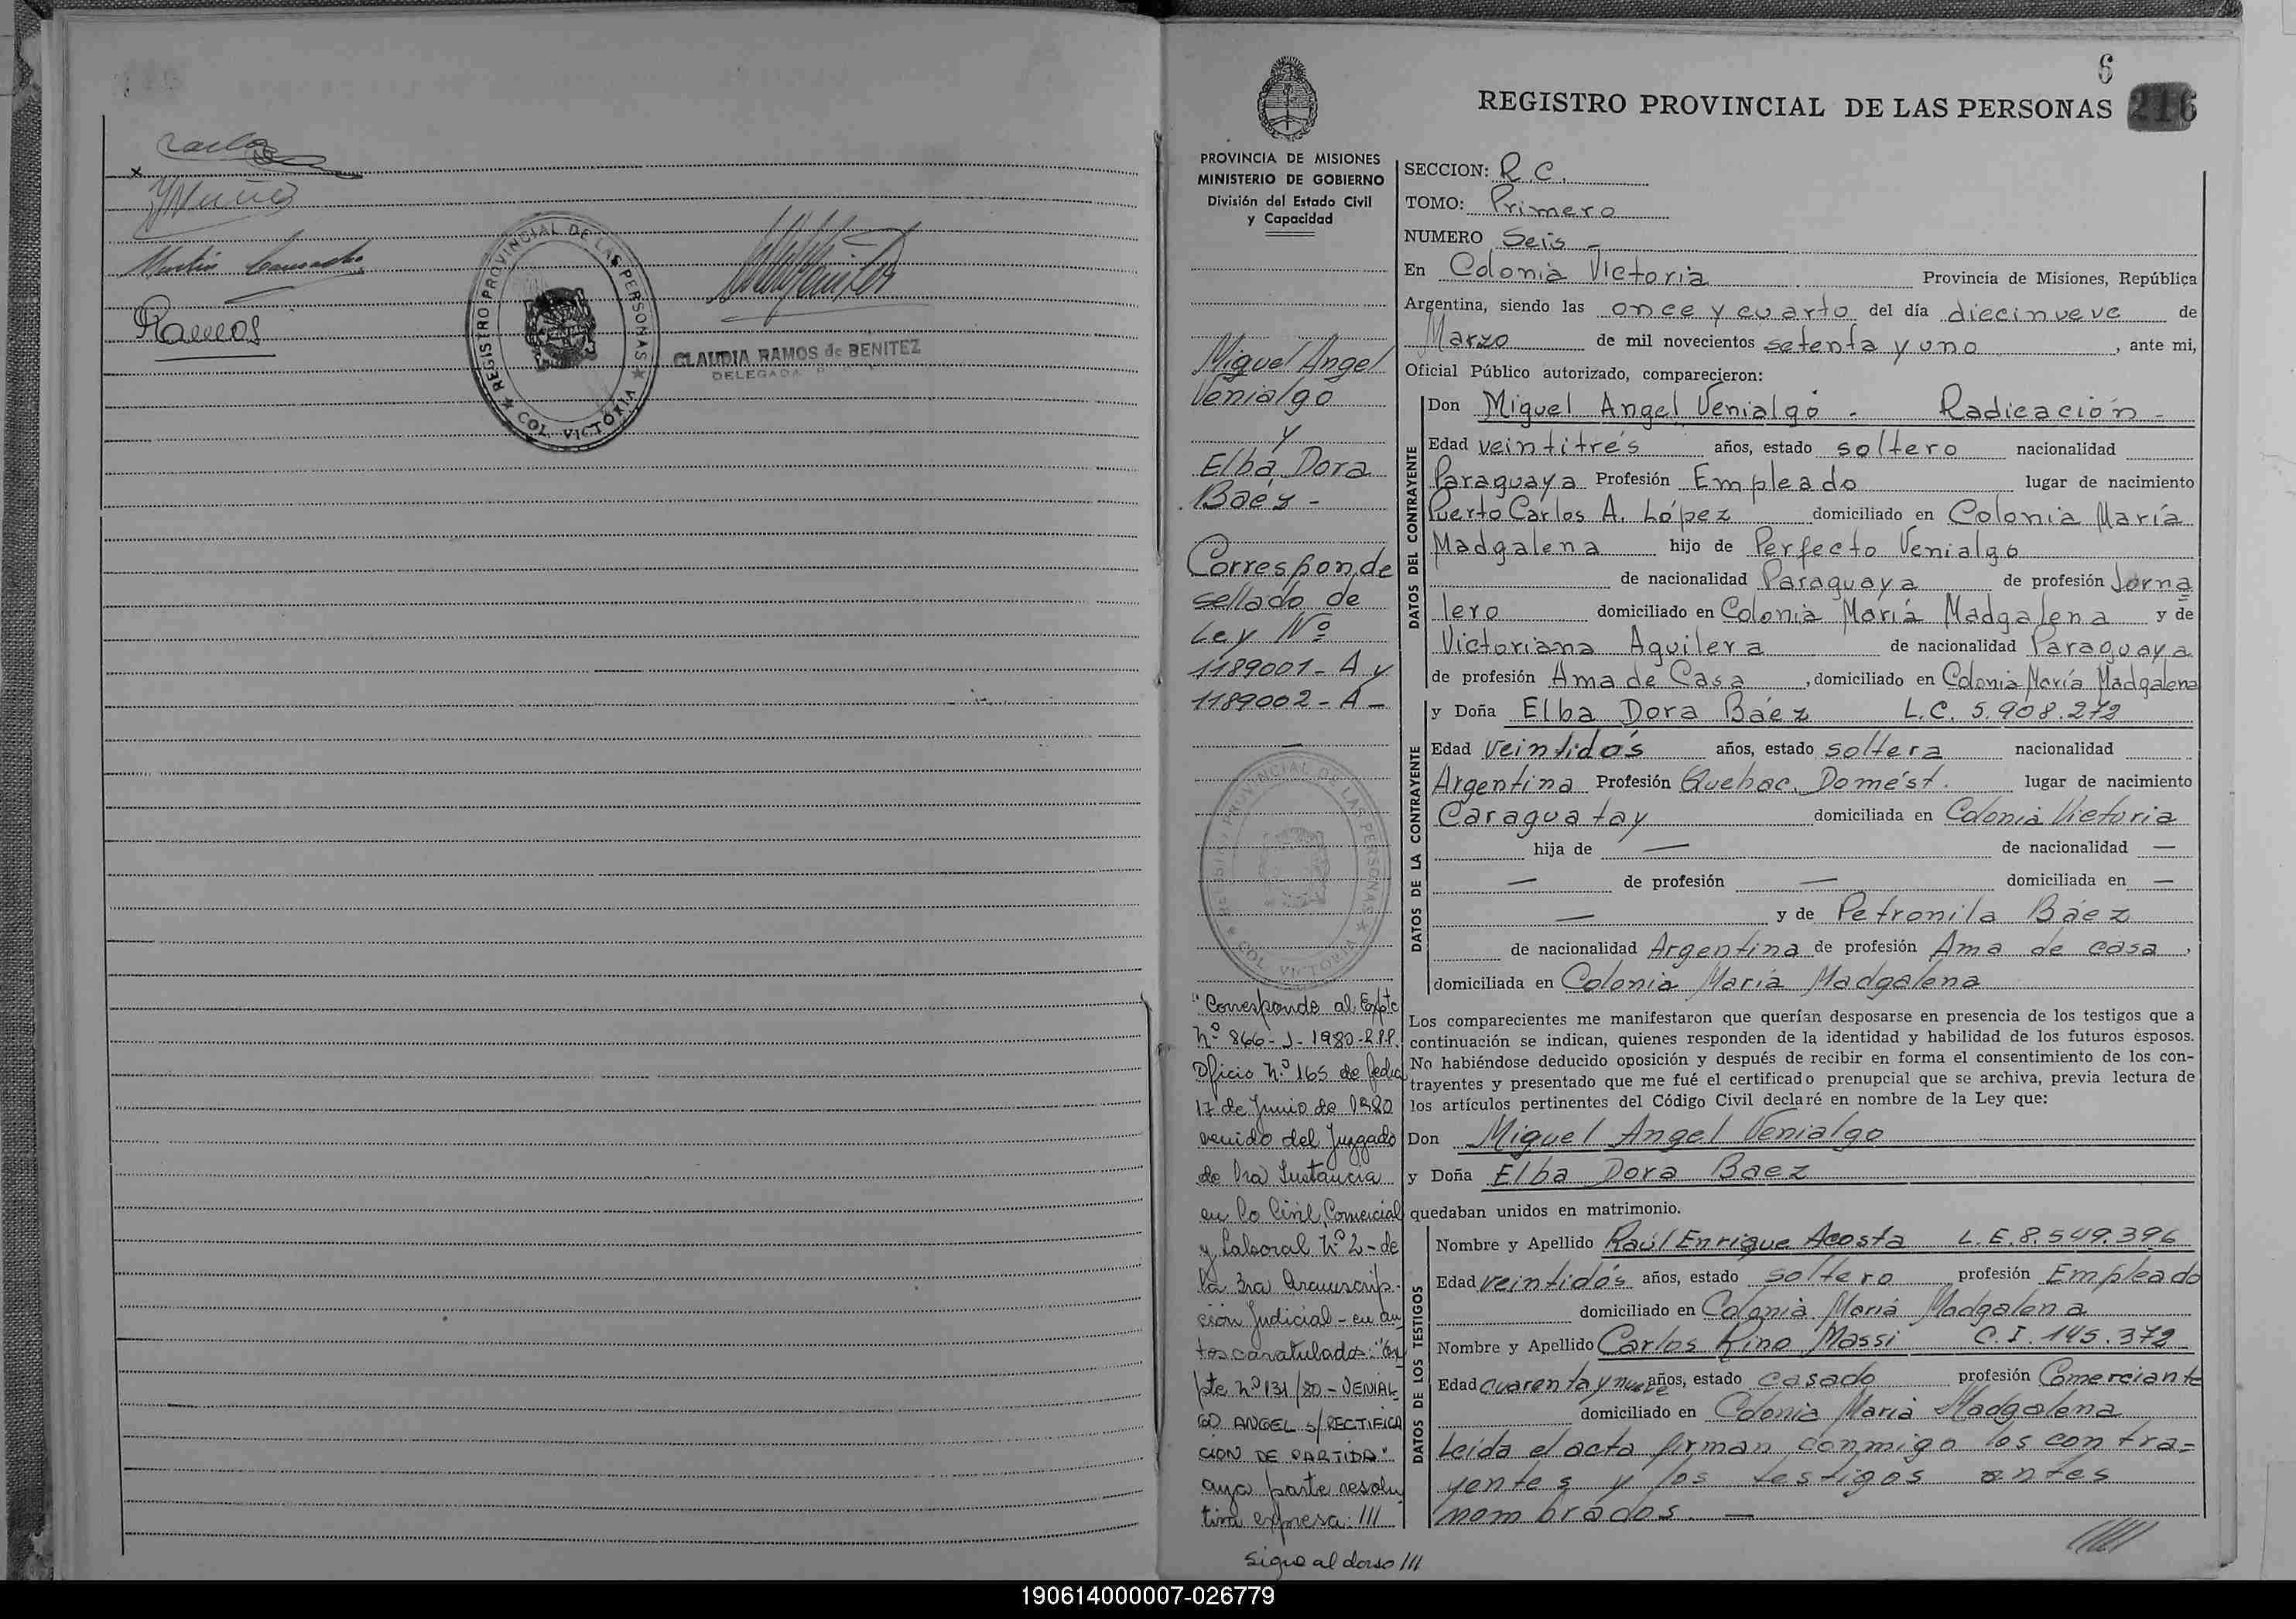 Ramos
REGISTRO PROVINCIAL DE LAS PERSONAS
COL. VICTORIA
CLAUDIA RAMOS de BENITEZ
DELEGADA
6
REGISTRO PROVINCIAL DE LAS PERSONAS 216
PROVINCIA DE MISIONES
MINISTERIO DE GOBIERNO
División del Estado Civil
y Capacidad
Miguel Angel
Venialgo
y
Elba Dora
Baéz -
Corresponde
sellado de
Ley Nº
1189001 - A y
1189002 - A -
REGISTRO PROVINCIAL DE LAS PERSONAS
COL. VICTORIA
"Corresponde al Expte
Nº 866 - J - 1980 - R.P.P.
Oficio Nº 165 de fecha
17 de Junio de 1980
venido del Juzgado
de 1ra Instancia
en lo Civil, Comercial
y Laboral Nº 2 - de
la 3ra Circunscrip-
ción Judicial - en au
tos caratulados: "Ex
pte Nº 131/80 - VENIAL
GO ANGEL s/ RECTIFICA
CION DE PARTIDA"
cuya parte resolu
tiva expresa: ///
Sigue al dorso ///
SECCION: R.C.
TOMO: Primero
NUMERO Seis -
En Colonia Victoria Provincia de Misiones, República
Argentina, siendo las once y cuarto del día diecinueve de
Marzo de mil novecientos setenta y uno, ante mi,
Oficial Público autorizado, comparecieron:
DATOS DEL CONTRAYENTE
Don Miguel Angel Venialgo - Radicación -
Edad veintitrés años, estado soltero nacionalidad
Paraguaya Profesión Empleado lugar de nacimiento
Puerto Carlos A. López domiciliado en Colonia María
Madgalena hijo de Perfecto Venialgo
de nacionalidad Paraguaya de profesión Jorna
lero domiciliado en Colonia María Madgalena y de
Victoriana Aguilera de nacionalidad Paraguaya
de profesión Ama de Casa, domiciliado en Colonia María Madgalena
DATOS DE LA CONTRAYENTE
y Doña Elba Dora Báez L.C. 5.908.272
Edad veintidós años, estado soltera nacionalidad
Argentina Profesión Quehac. Domést. lugar de nacimiento
Caraguatay domiciliada en Colonia Victoria
hija de — de nacionalidad —
— de profesión — domiciliada en —
— y de Petronila Báez
de nacionalidad Argentina de profesión Ama de casa,
domiciliada en Colonia María Madgalena
Los comparecientes me manifestaron que querían desposarse en presencia de los testigos que a
continuación se indican, quienes responden de la identidad y habilidad de los futuros esposos.
No habiéndose deducido oposición y después de recibir en forma el consentimiento de los con-
trayentes y presentado que me fué el certificado prenupcial que se archiva, previa lectura de
los artículos pertinentes del Código Civil declaré en nombre de la Ley que:
Don Miguel Angel Venialgo
y Doña Elba Dora Baez
quedaban unidos en matrimonio.
DATOS DE LOS TESTIGOS
Nombre y Apellido Raúl Enrique Acosta L.E. 8.549.396
Edad veintidós años, estado soltero profesión Empleado
domiciliado en Colonia María Madgalena
Nombre y Apellido Carlos Rino Massi C.I. 145.372
Edad cuarenta y nueve años, estado casado profesión Comerciante
domiciliado en Colonia María Madgalena
Leída el acta firman conmigo los contra=
yentes y los testigos antes
nombrados. —
190614000007-026779